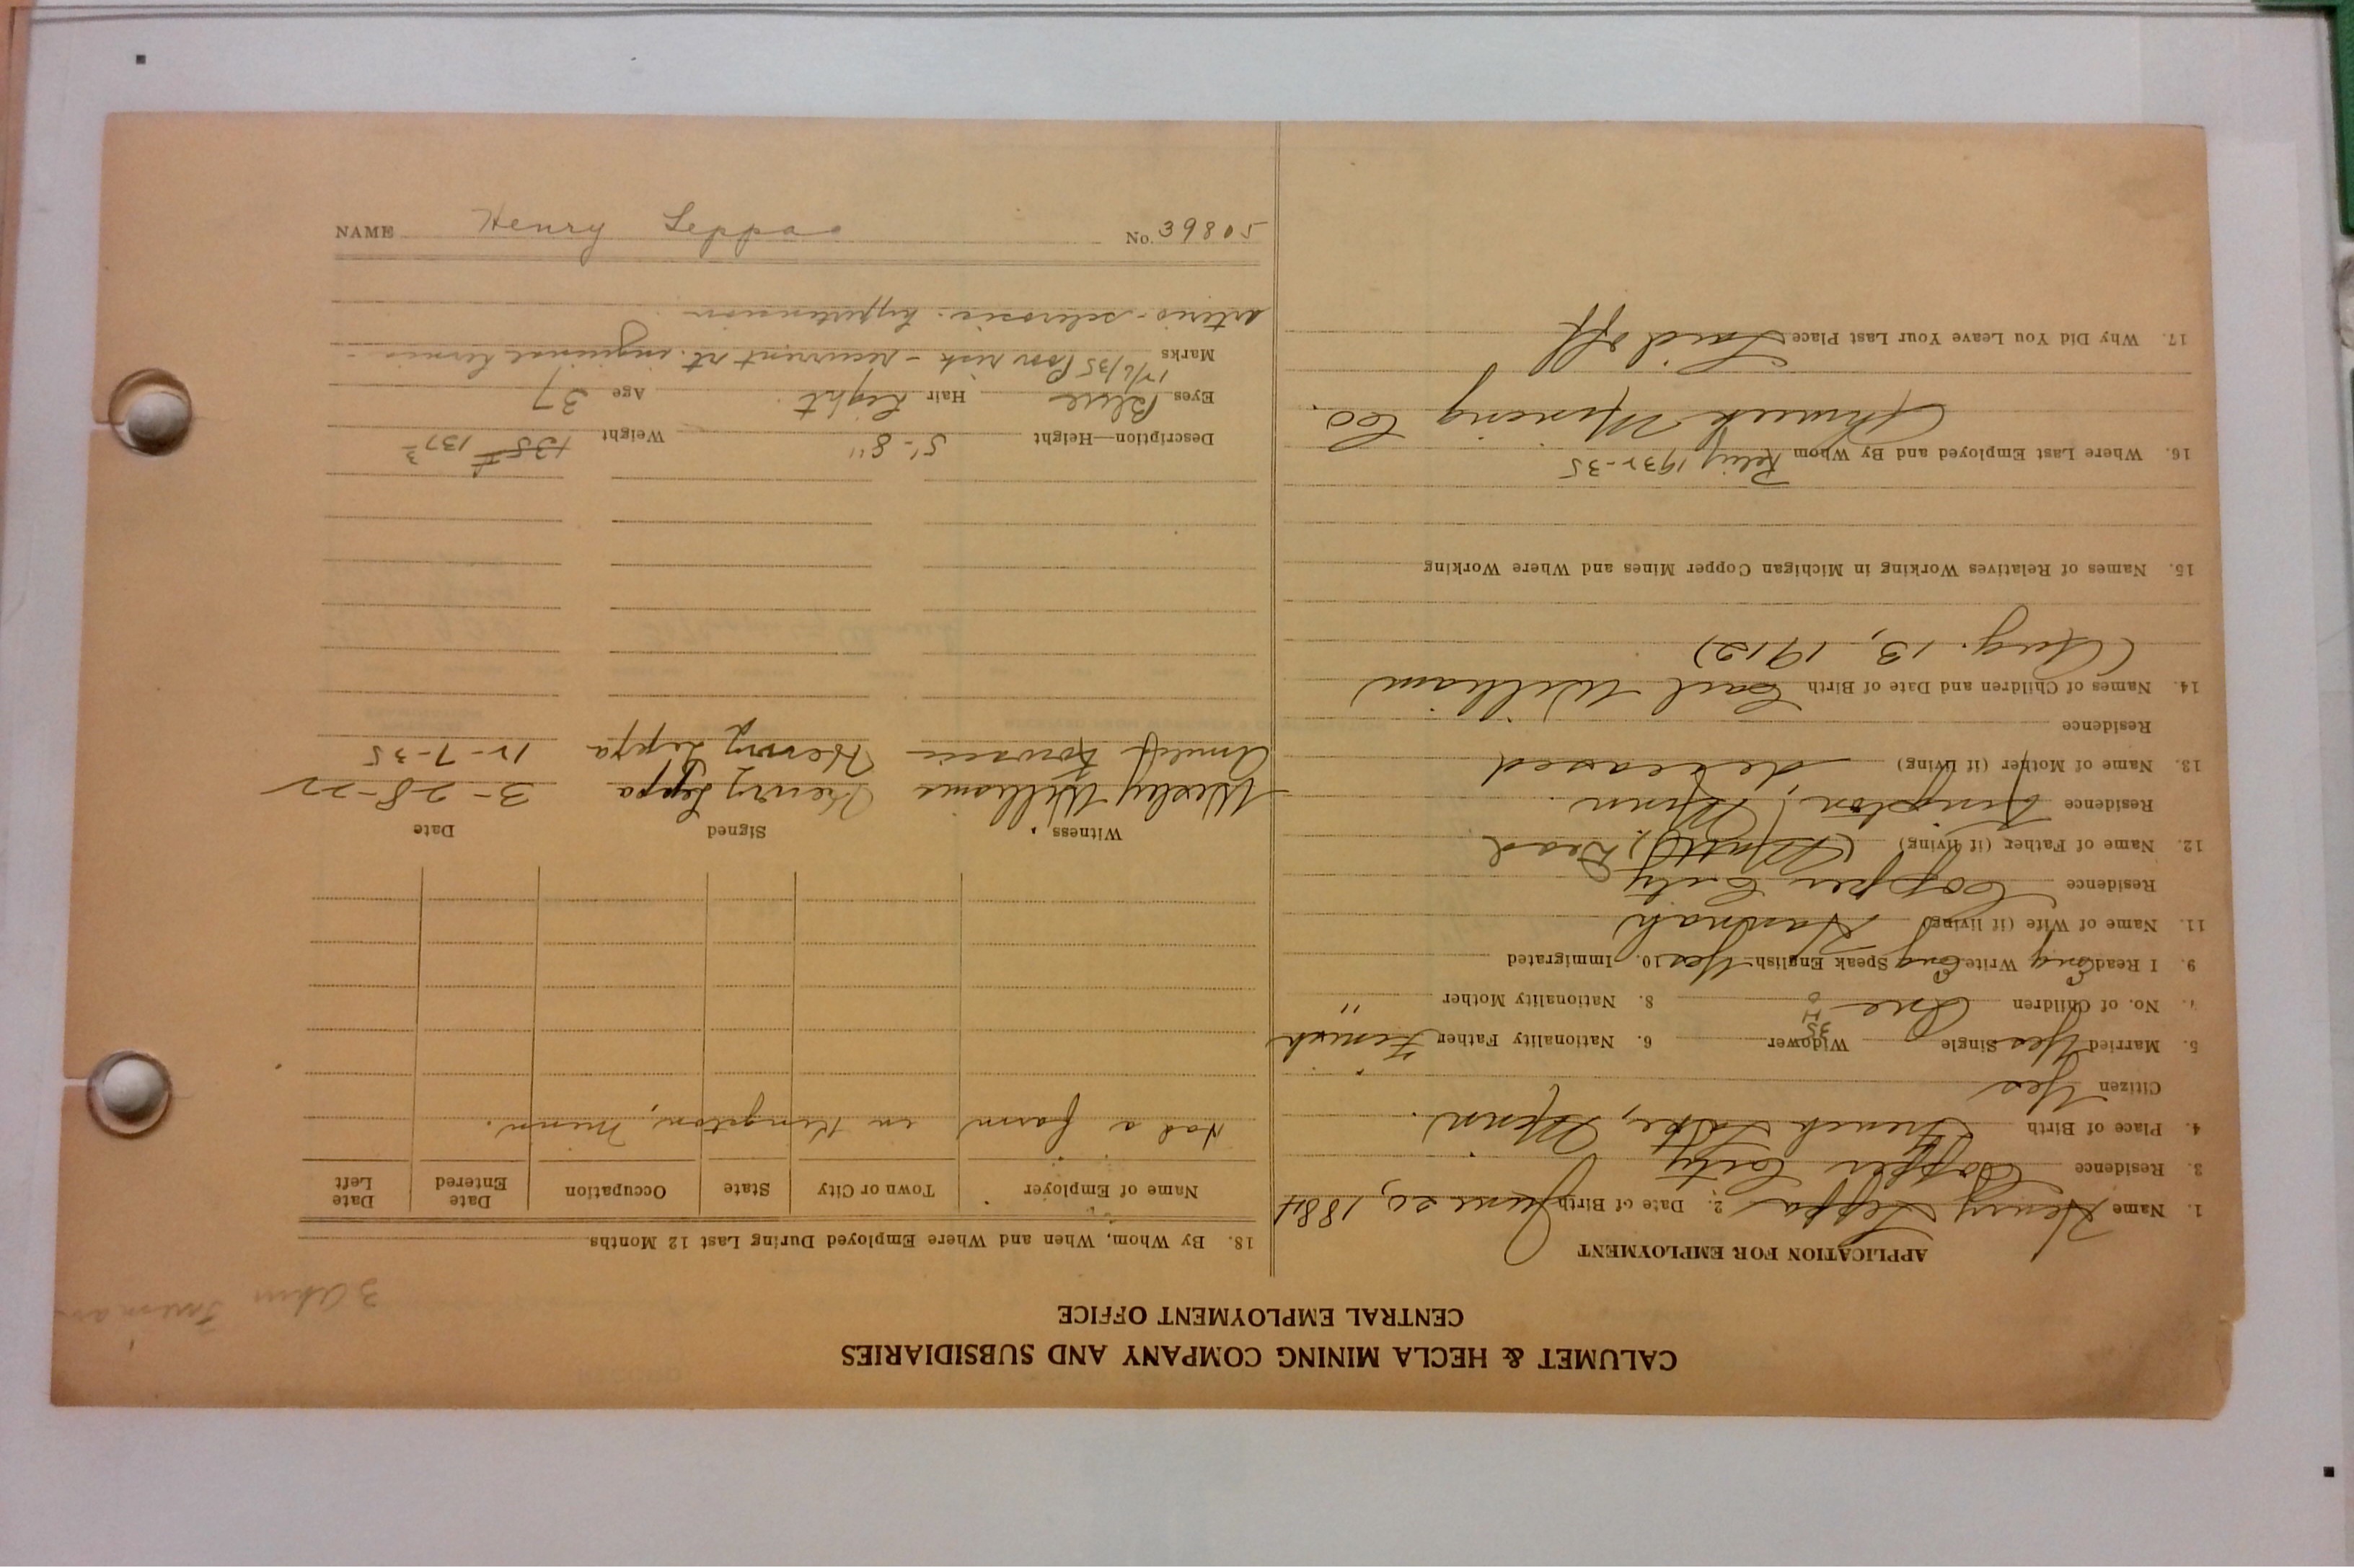 CALUMET & HECLA MINING COMPANY AND SUBSIDIARIES
CENTRAL EMPLOYMENT OFFICE
APPLICATION FOR EMPLOYMENT
1. Name Henry Leppa 2. Date of Birth June 20, 1884
3. Residence Copper City
4. Place of Birth French Lake, Minn.
Citizen Yes
5. Married Yes Single Widower 6. Nationality Father Finnish
35
H
7. No. of Children One 8. Nationality Mother "
9. I Read Eng Write Eng Speak English Yes 10. Immigrated
11. Name of Wife (if living) Hannah
Residence Copper City
12. Name of Father (if living) (Matt) Dead
Residence Kingston, Minn.
13. Name of Mother (if living) deceased
Residence
14. Names of Children and Date of Birth Earl William
(Aug. 13, 1912)
15. Names of Relatives Working in Michigan Copper Mines and Where Working
16. Where Last Employed and By Whom Relief 1932-35
Ahmeek Mining Co.
17. Why Did You Leave Your Last Place Laid off
3 Ahm Trimman
18. By Whom, When and Where Employed During Last 12 Months.
Name of Employer Town or City State Occupation Date Entered Date Left
Had a farm in Kingston, Minn.
Witness Signed Date
Wesley Williams Henry Leppa 3-28-22
Henry Leppa 12-7-35
Description—Height 5'-8" Weight 135# 137 3
Eyes Blue Hair Light Age 37
Marks 12/6/35 Poor risk - recurrent rt. inguinal hernia -
arterio-sclerosis. hypertension
NAME Henry Leppa No. 39805